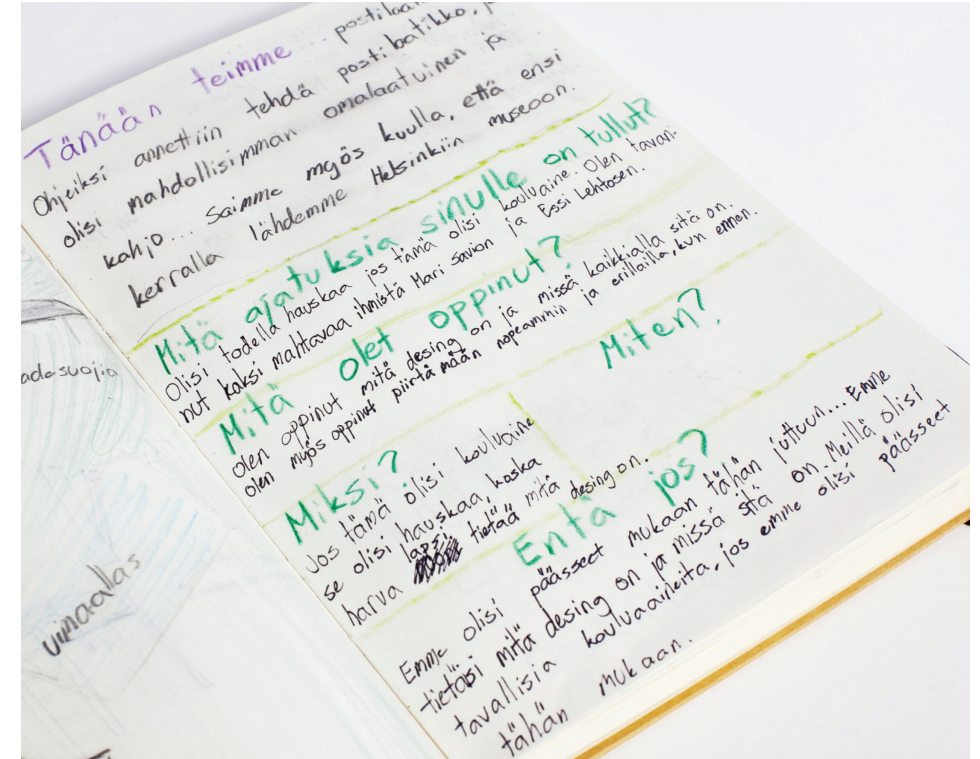 Tänään teimme... postilaa
Ohjeiksi annettiin tehdä postilaatikko, j
olisi mahdollisimman omalaatuinen ja
kahjo... Saimme myös kuulla, että ensi
kerralla lähdemme Helsinkiin museoon.
Mitä ajatuksia sinulle on tullut?
Olisi todella hauskaa jos tämä olisi kouluaine. Olen tavan-
nut kaksi mahtavaa ihmistä Mari Savion ja Essi Lehtosen.
Mitä olet oppinut?
olen oppinut mitä desing on ja missä kaikkialla sitä on.
olen myös oppinut piirtämään nopeammin ja erillailla, kun ennen.
Miksi?
Jos tämä olisi kouluaine
se olisi hauskaa, koska
harva lapsi tietää mitä desing on.
Miten?
Entä jos?
Emme olisi päässeet mukaan tähän juttuun... Emme
tietäisi mitä desing on ja missä sitä on. Meillä olisi
tavallisia kouluaineita, jos emme olisi päässeet
tähän mukaan.
adesuojia
uimaallas